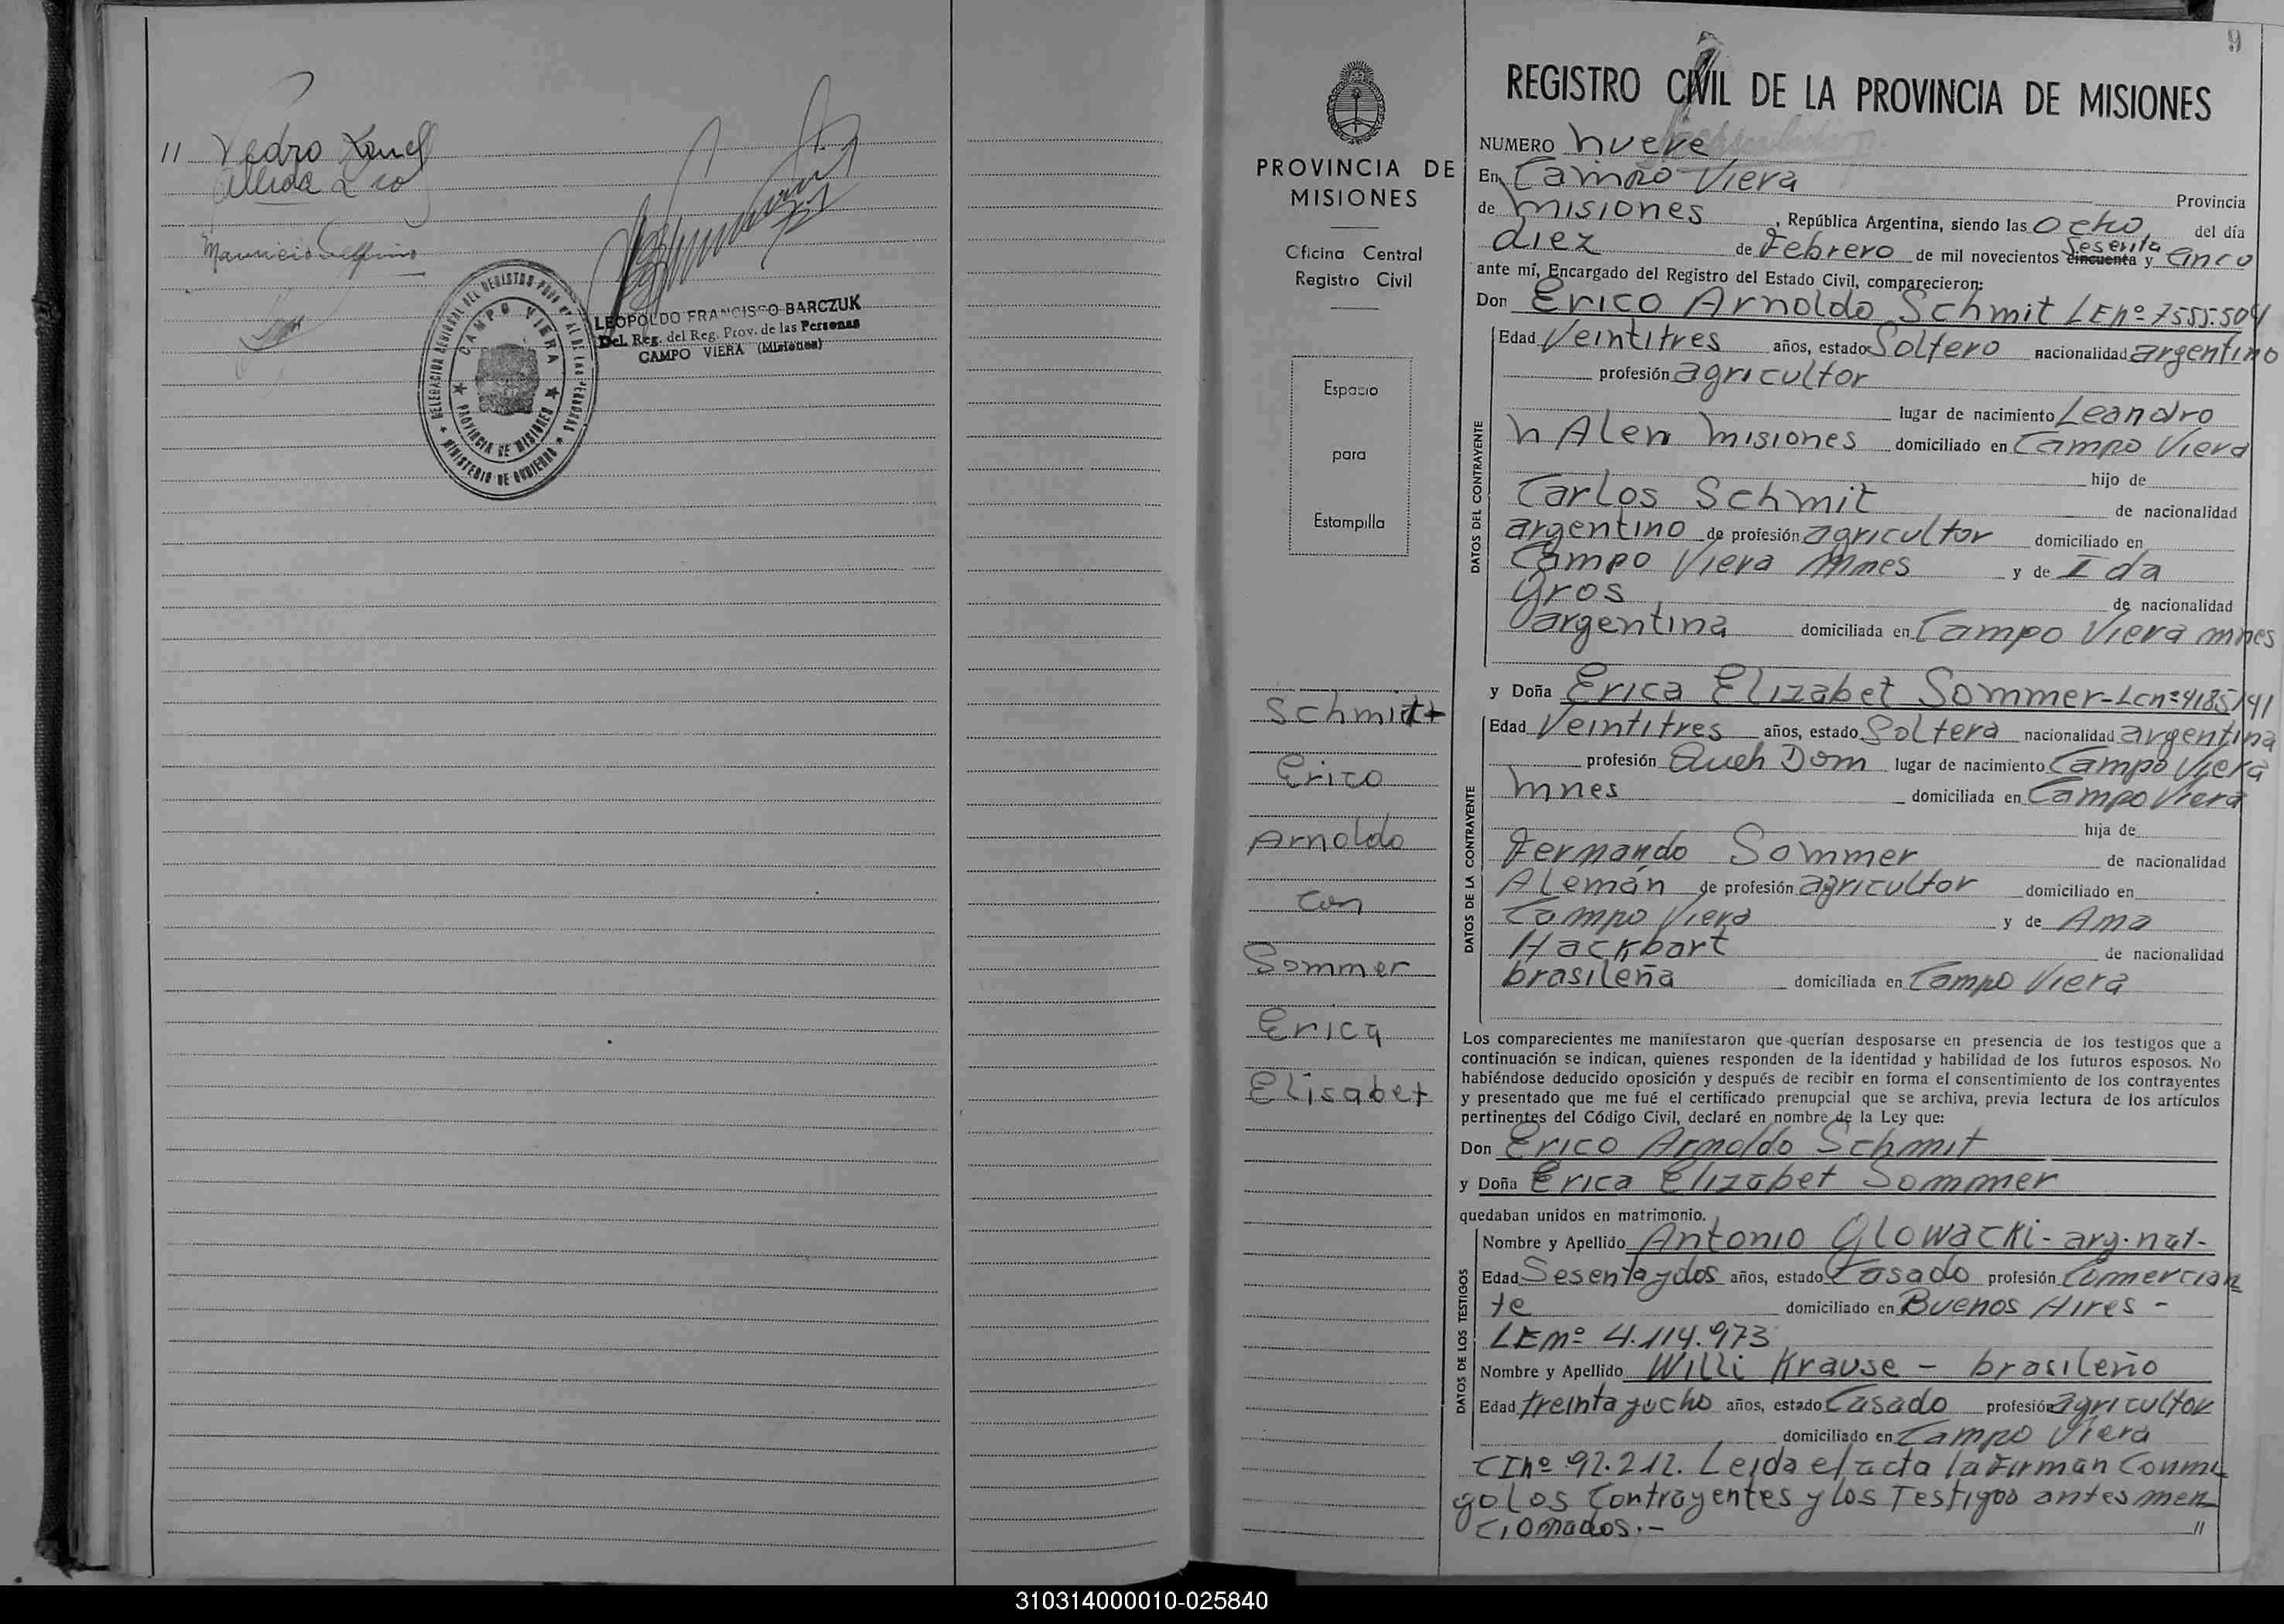 11 Pedro
Mauricio
DELEGACION REGIONAL DEL REGISTRO PROV. DE LAS PERSONAS
CAMPO VIERA
PROVINCIA DE MISIONES
MINISTERIO DE GOBIERNO
LEOPOLDO FRANCISCO BARCZUK
Del. Reg. del Reg. Prov. de las Personas
CAMPO VIERA (Misiones)
PROVINCIA DE
MISIONES
Oficina Central
Registro Civil
Espacio
para
Estampilla
Schmitt
Erico
Arnoldo
con
Sommer
Erica
Elisabet
9
REGISTRO CIVIL DE LA PROVINCIA DE MISIONES
NUMERO nueve
En Campo Viera Provincia
de misiones, República Argentina, siendo las ocho, del día
diez de Febrero de mil novecientos cincuenta Sesenta y cinco
ante mí, Encargado del Registro del Estado Civil, comparecieron:
Don Erico Arnoldo Schmit LEnº 7555.504
DATOS DEL CONTRAYENTE
Edad Veintitres años, estado Soltero nacionalidad argentino
profesión agricultor
lugar de nacimiento Leandro
N Alen misiones domiciliado en Campo Viera
hijo de
Carlos Schmit de nacionalidad
argentino de profesión agricultor domiciliado en
Campo Viera Mnes y de Ida
Gros de nacionalidad
argentina domiciliada en Campo Viera mnes
y Doña Erica Elizabet Sommer-Lcnº4185141
DATOS DE LA CONTRAYENTE
Edad Veintitres años, estado Soltera nacionalidad argentina
profesión Queh Dom lugar de nacimiento Campo Viera
Mnes domiciliada en Campo Viera
hija de
Fernando Sommer de nacionalidad
Alemán de profesión agricultor domiciliado en
Campo Viera y de Ama
Hackbart de nacionalidad
brasileña domiciliada en Campo Viera
Los comparecientes me manifestaron que querían desposarse en presencia de los testigos que a
continuación se indican, quienes responden de la identidad y habilidad de los futuros esposos. No
habiéndose deducido oposición y después de recibir en forma el consentimiento de los contrayentes
y presentado que me fué el certificado prenupcial que se archiva, previa lectura de los artículos
pertinentes del Código Civil, declaré en nombre de la Ley que:
Don Erico Arnoldo Schmit
y Doña Erica Elizabet Sommer
quedaban unidos en matrimonio.
DATOS DE LOS TESTIGOS
Nombre y Apellido Antonio Glowacki - arg. nat-
Edad Sesenta y dos años, estado Casado profesión Comercian
te domiciliado en Buenos Aires -
LEmº 4.114.973
Nombre y Apellido Willi Krause - brasileño
Edad treinta y ocho años, estado Casado profesión agricultor
domiciliado en Campo Viera
CInº 92.212. Leida el acta la Firman Conmi
go los Contrayentes y los Testigos antes men
cionados.- //
310314000010-025840